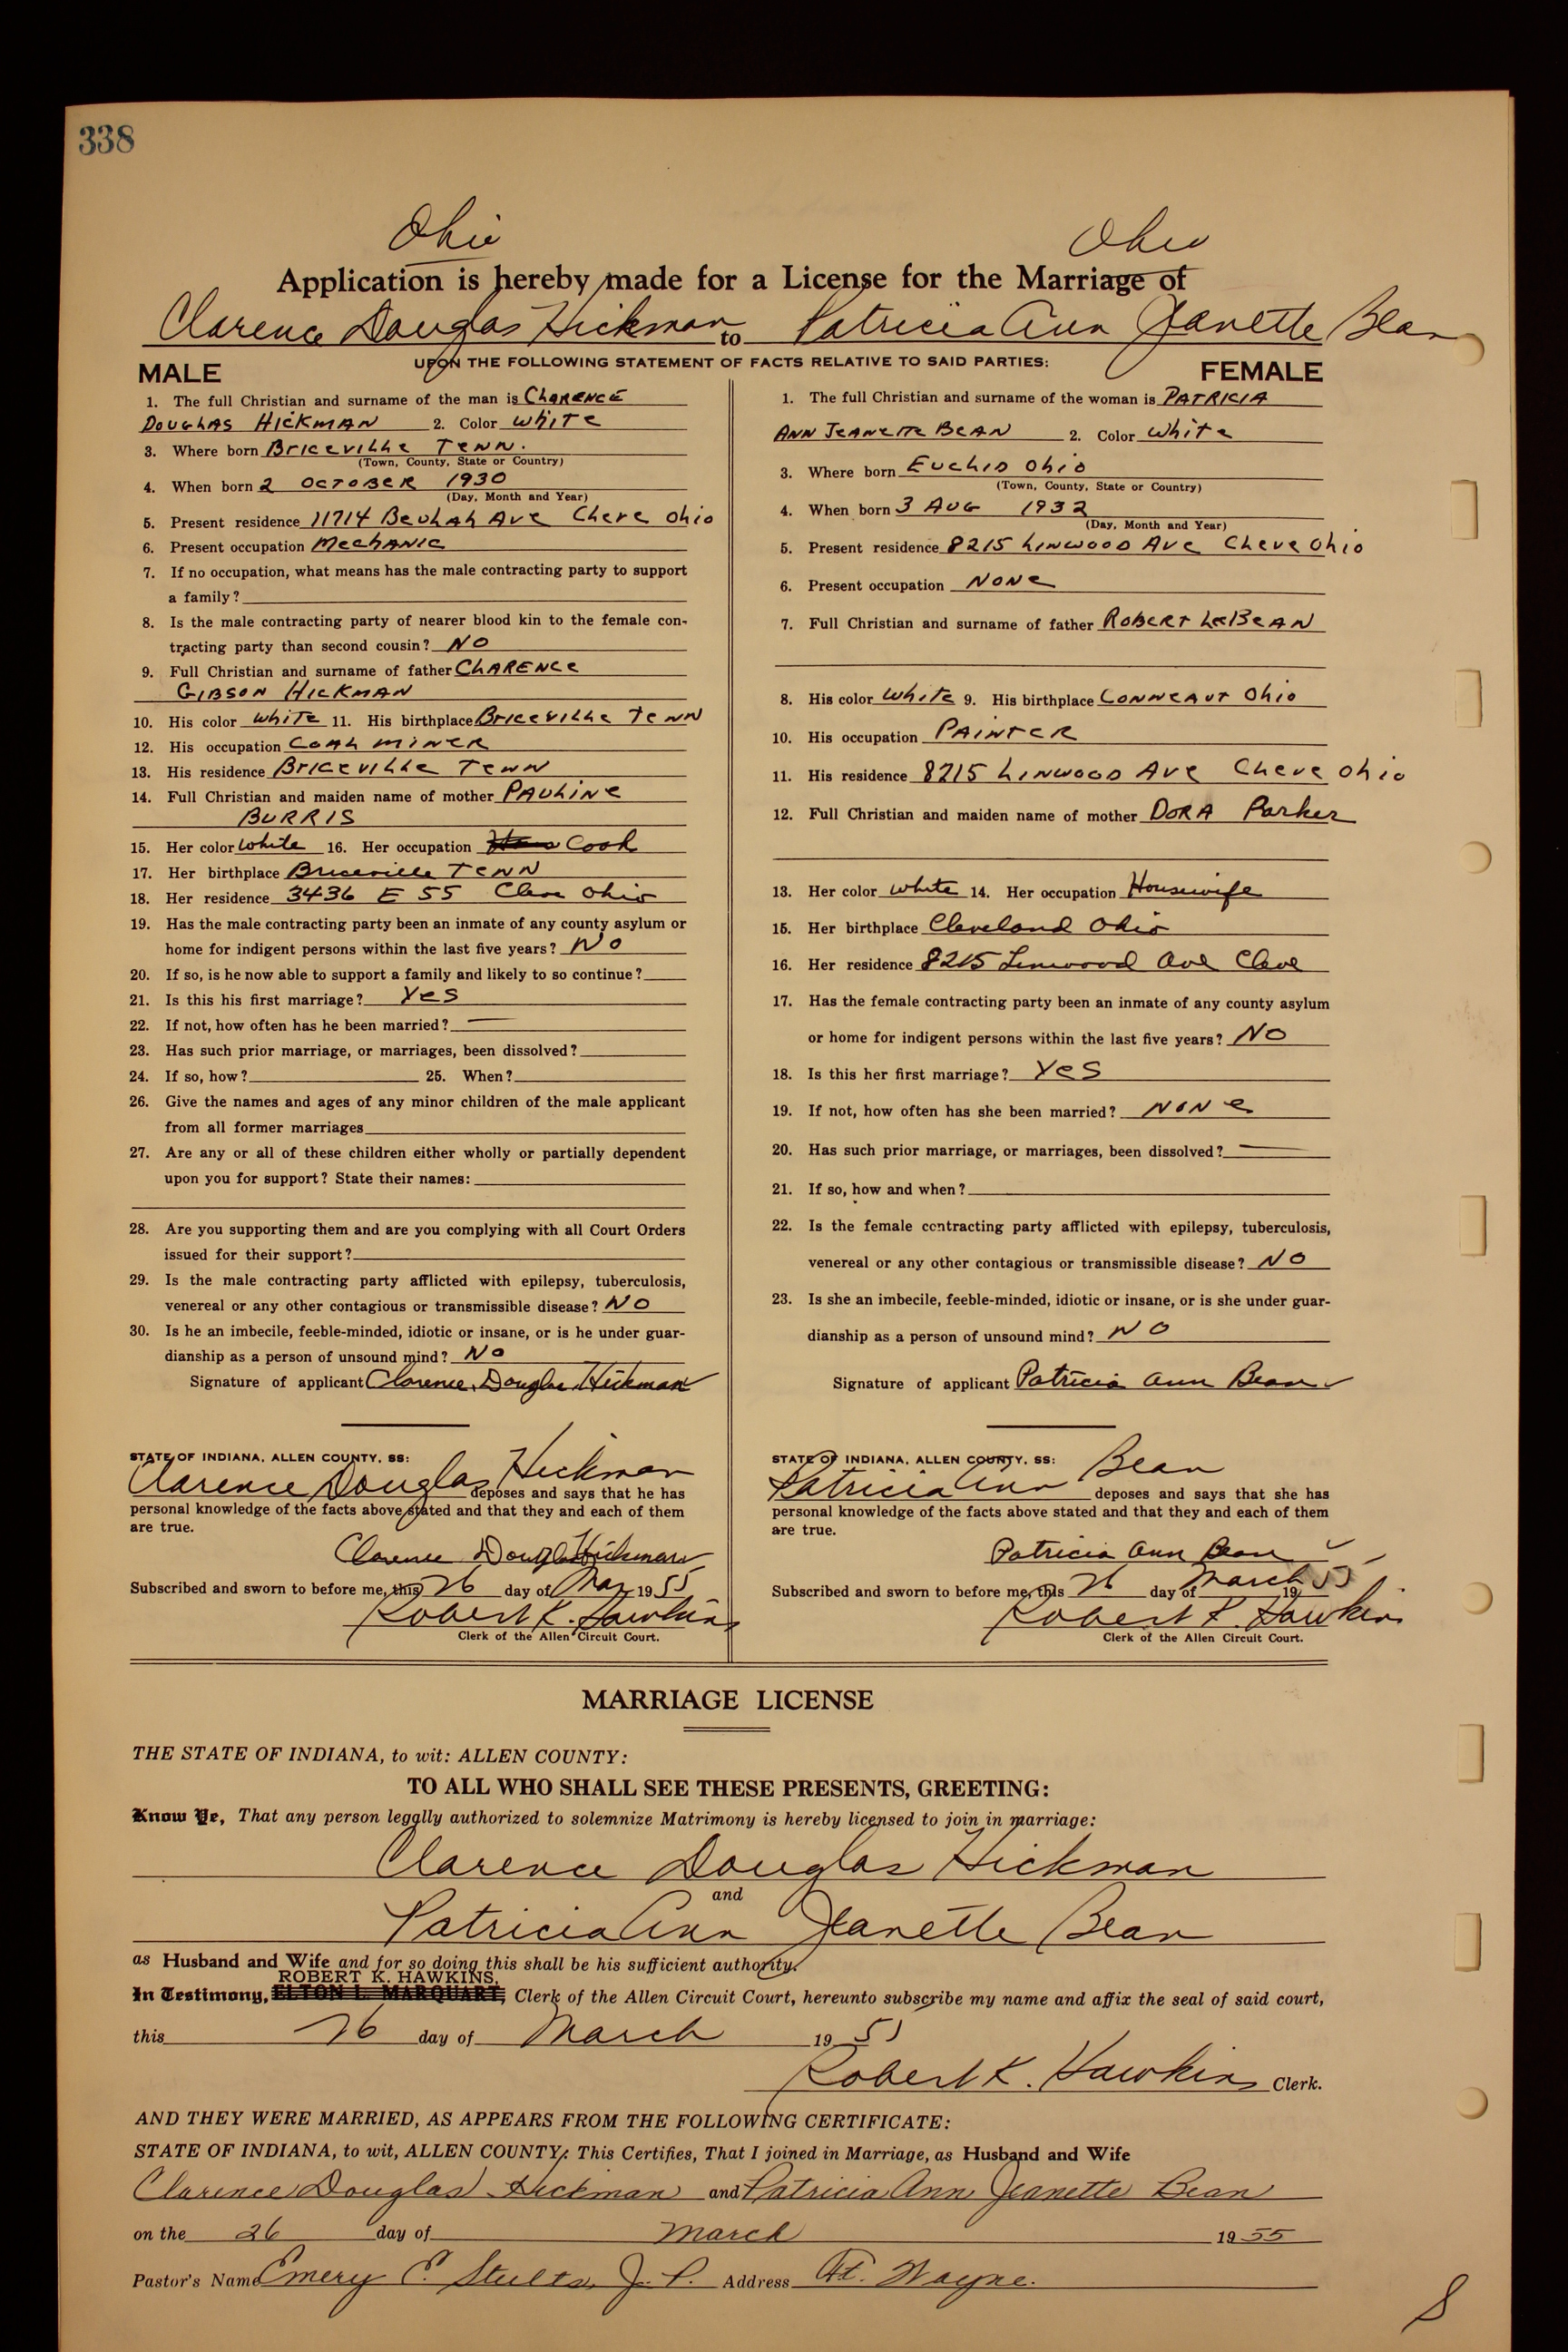 338
Ohio Ohio
Application is hereby made for a License for the Marriage of
Clarence Douglas Hickman to Patricia Ann Jeanette Bean
UPON THE FOLLOWING STATEMENT OF FACTS RELATIVE TO SAID PARTIES:
MALE
1. The full Christian and surname of the man is Clarence
Douglas Hickman 2. Color White
3. Where born Briceville Tenn.
(Town, County, State or Country)
4. When born 2 October 1930
(Day, Month and Year)
5. Present residence 11714 Beulah Ave Cleve Ohio
6. Present occupation Mechanic
7. If no occupation, what means has the male contracting party to support
a family?
8. Is the male contracting party of nearer blood kin to the female con-
tracting party than second cousin? No
9. Full Christian and surname of father Clarence
Gibson Hickman
10. His color White 11. His birthplace Briceville Tenn
12. His occupation Coal Miner
13. His residence Briceville Tenn
14. Full Christian and maiden name of mother Pauline
Burris
15. Her color White 16. Her occupation Cook
17. Her birthplace Briceville Tenn
18. Her residence 3436 E 55 Cleve Ohio
19. Has the male contracting party been an inmate of any county asylum or
home for indigent persons within the last five years? No
20. If so, is he now able to support a family and likely to so continue?
21. Is this his first marriage? Yes
22. If not, how often has he been married? —
23. Has such prior marriage, or marriages, been dissolved?
24. If so, how? 25. When?
26. Give the names and ages of any minor children of the male applicant
from all former marriages
27. Are any or all of these children either wholly or partially dependent
upon you for support? State their names:
28. Are you supporting them and are you complying with all Court Orders
issued for their support?
29. Is the male contracting party afflicted with epilepsy, tuberculosis,
venereal or any other contagious or transmissible disease? No
30. Is he an imbecile, feeble-minded, idiotic or insane, or is he under guar-
dianship as a person of unsound mind? No
Signature of applicant Clarence Douglas Hickman
STATE OF INDIANA, ALLEN COUNTY, SS:
Clarence Douglas Hickman deposes and says that he has
personal knowledge of the facts above stated and that they and each of them
are true.
Clarence Douglas Hickman
Subscribed and sworn to before me, this 26 day of Mar 1955
Robert K. Hawkins
Clerk of the Allen Circuit Court.
FEMALE
1. The full Christian and surname of the woman is Patricia
Ann Jeanette Bean 2. Color White
3. Where born Euclid Ohio
(Town, County, State or Country)
4. When born 3 Aug 1932
(Day, Month and Year)
5. Present residence 8215 Linwood Ave Cleve Ohio
6. Present occupation None
7. Full Christian and surname of father Robert LeBean
8. His color White 9. His birthplace Conneaut Ohio
10. His occupation Painter
11. His residence 8215 Linwood Ave Cleve Ohio
12. Full Christian and maiden name of mother Dora Parker
13. Her color White 14. Her occupation Housewife
15. Her birthplace Cleveland Ohio
16. Her residence 8215 Linwood Ave Cleve
17. Has the female contracting party been an inmate of any county asylum
or home for indigent persons within the last five years? No
18. Is this her first marriage? Yes
19. If not, how often has she been married? None
20. Has such prior marriage, or marriages, been dissolved? —
21. If so, how and when?
22. Is the female contracting party afflicted with epilepsy, tuberculosis,
venereal or any other contagious or transmissible disease? No
23. Is she an imbecile, feeble-minded, idiotic or insane, or is she under guar-
dianship as a person of unsound mind? No
Signature of applicant Patricia Ann Bean
STATE OF INDIANA, ALLEN COUNTY, SS:
Patricia Ann Bean deposes and says that she has
personal knowledge of the facts above stated and that they and each of them
are true.
Patricia Ann Bean
Subscribed and sworn to before me, this 26 day of March 1955
Robert K. Hawkins
Clerk of the Allen Circuit Court.
MARRIAGE LICENSE
THE STATE OF INDIANA, to wit: ALLEN COUNTY:
TO ALL WHO SHALL SEE THESE PRESENTS, GREETING:
Know Ye, That any person legally authorized to solemnize Matrimony is hereby licensed to join in marriage:
Clarence Douglas Hickman
and
Patricia Ann Jeanette Bean
as Husband and Wife and for so doing this shall be his sufficient authority.
ROBERT K. HAWKINS,
In Testimony, ELTON L. MARQUART, Clerk of the Allen Circuit Court, hereunto subscribe my name and affix the seal of said court,
this 26 day of March 1955
Robert K. Hawkins Clerk.
AND THEY WERE MARRIED, AS APPEARS FROM THE FOLLOWING CERTIFICATE:
STATE OF INDIANA, to wit, ALLEN COUNTY: This Certifies, That I joined in Marriage, as Husband and Wife
Clarence Douglas Hickman and Patricia Ann Jeanette Bean
on the 26 day of March 1955
Pastor's Name Emery E. Stults, J. P. Address Ft. Wayne.